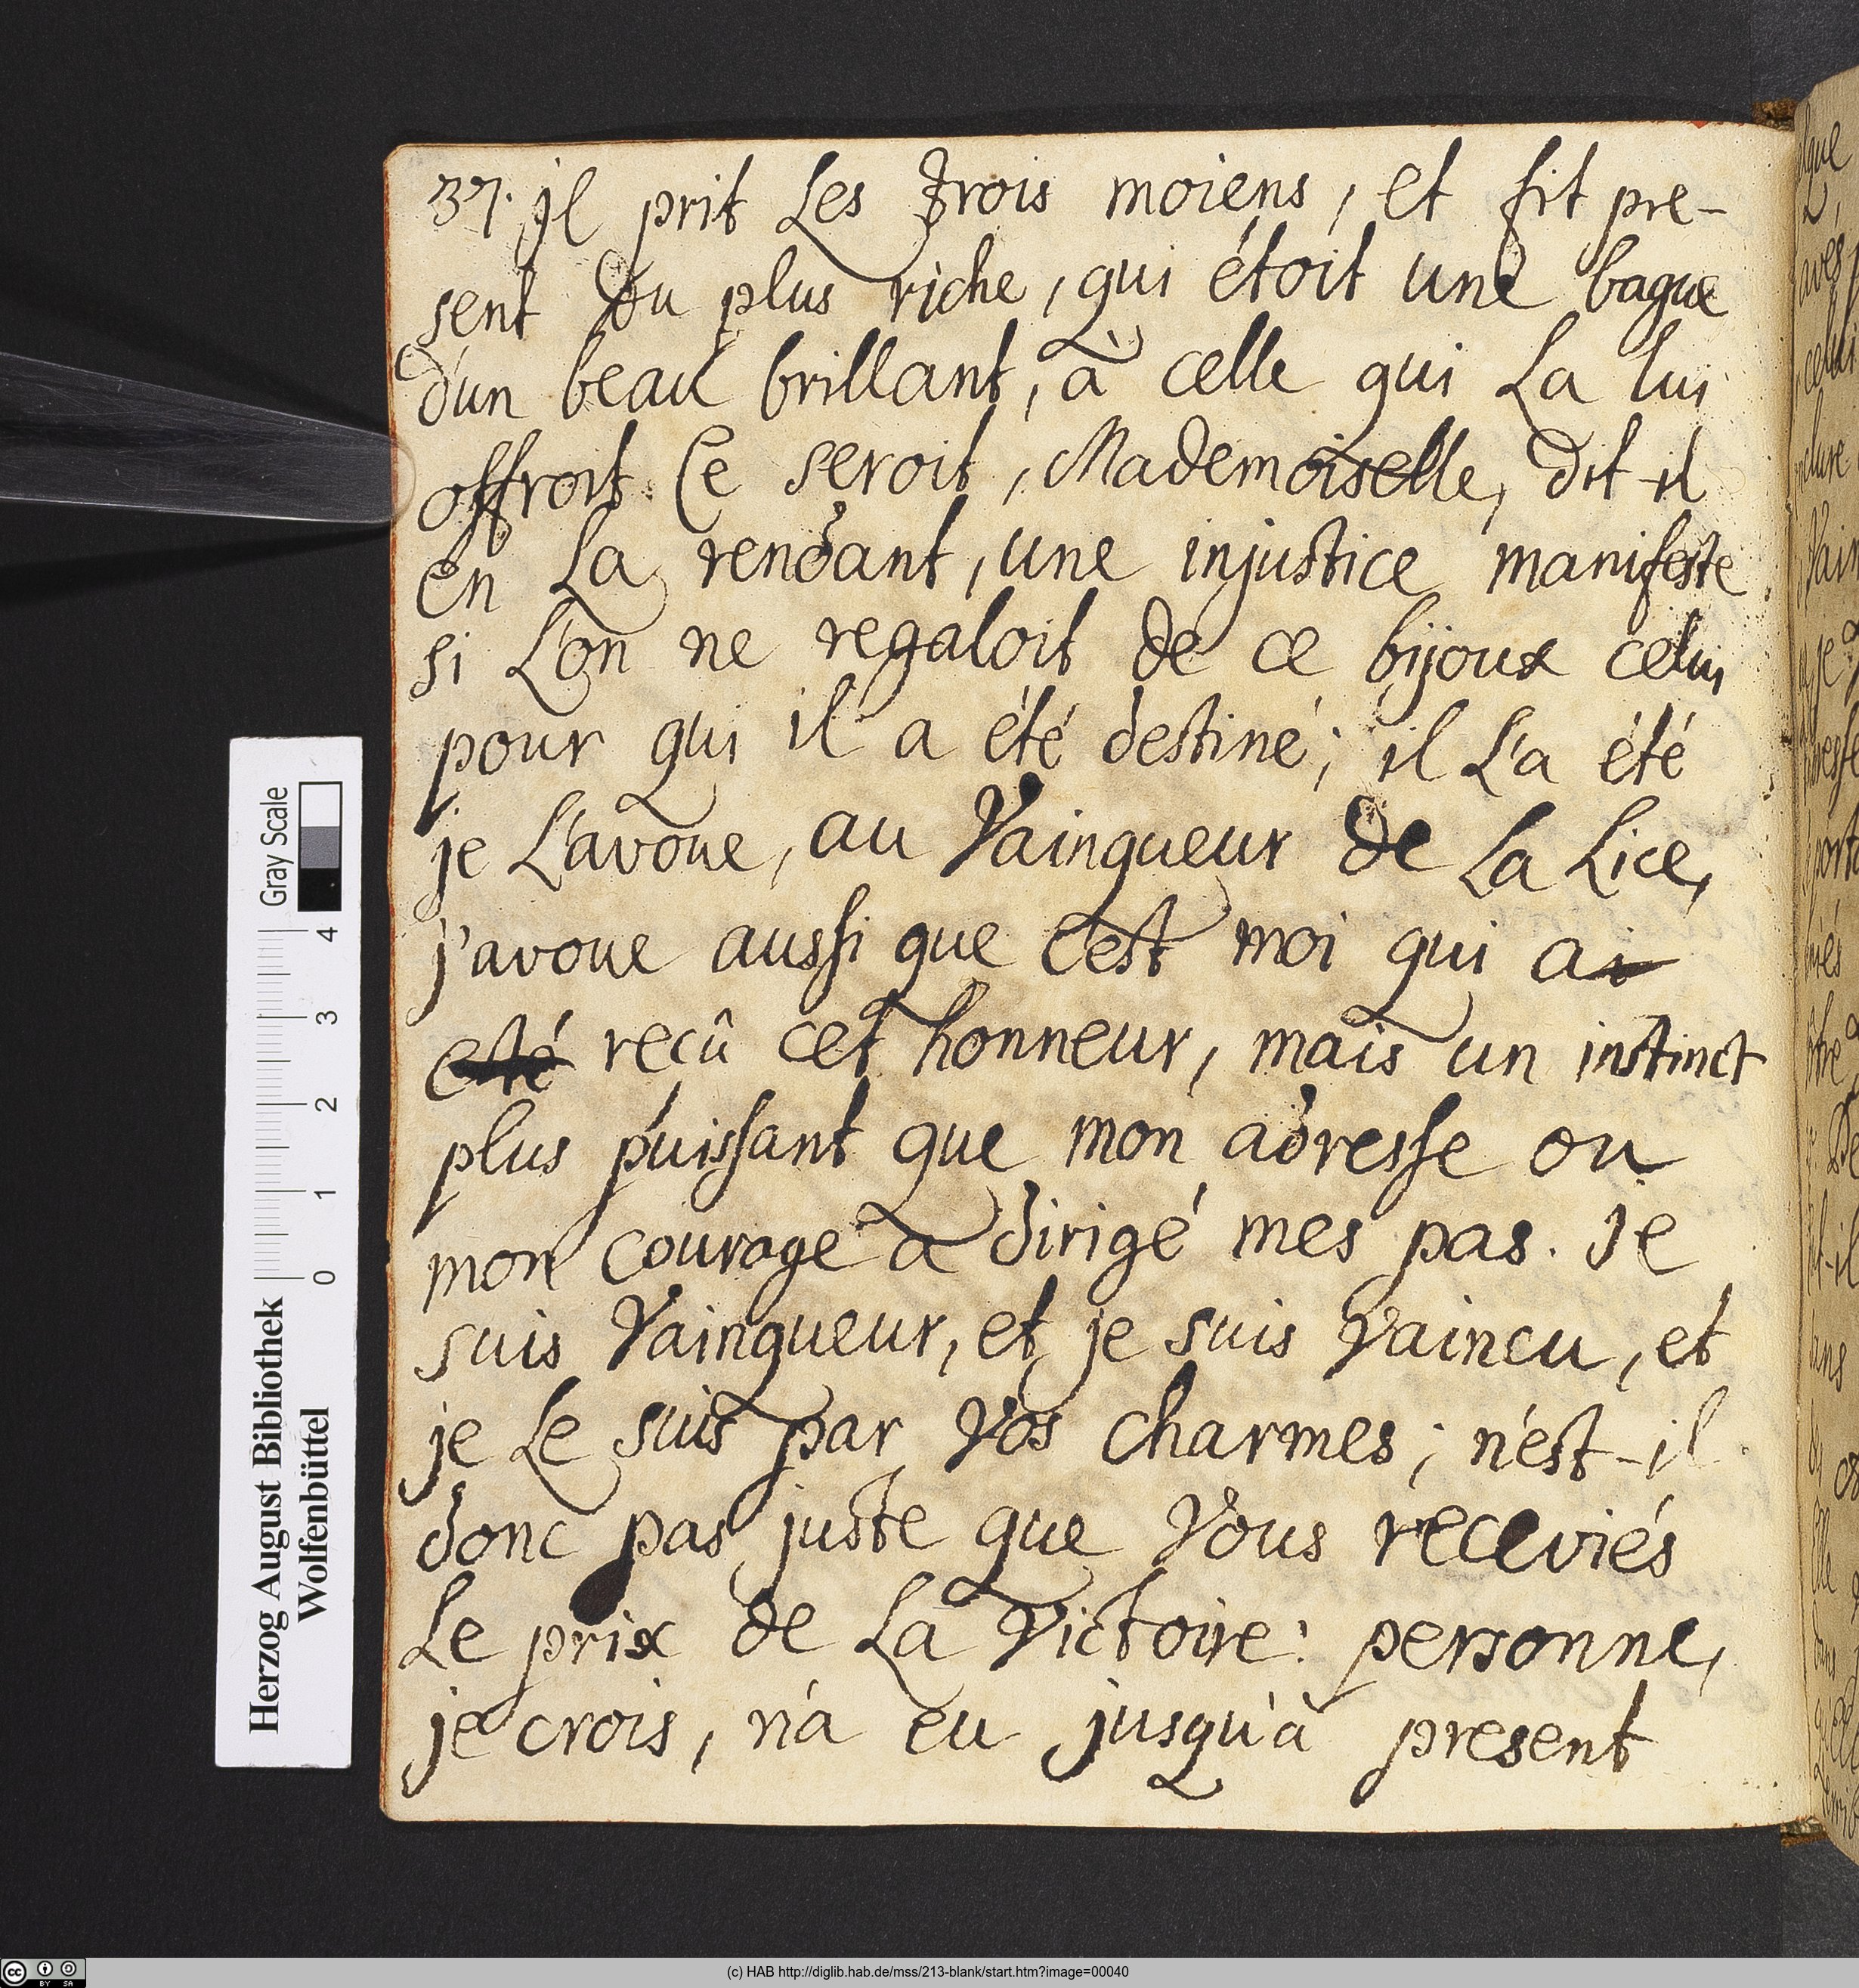 37. il prit Les trois moiens, et fit pre-
sent du plus riche, qui étoit une bague
d'un beau brillant, à celle qui La lui
offroit. Ce seroit, Mademoiselle, dit-il
en La rendant, une injustice manifeste
si L'on ne regaloit de ce bijoux celui
pour qui il a été destiné; il L'a été
je L'avoue, au Vainqueur de La Lice,
j'avoue aussi que c'est moi qui ai
eté reçû cet honneur, mais un instinct
plus puissant que mon adresse ou
mon courage a dirigé mes pas. Je
suis Vainqueur, et je suis Vaincu, et
je Le suis par Vos charmes; n'est-il
donc pas juste que Vous receviés
Le prix de La Victoire: personne,
je crois, n'a eu jusqu'à present
Gray Scale
4
3
2
1
0
Herzog August Bibliothek
Wolfenbüttel
(c) HAB http://diglib.hab.de/mss/213-blank/start.htm?image=00040
BY SA